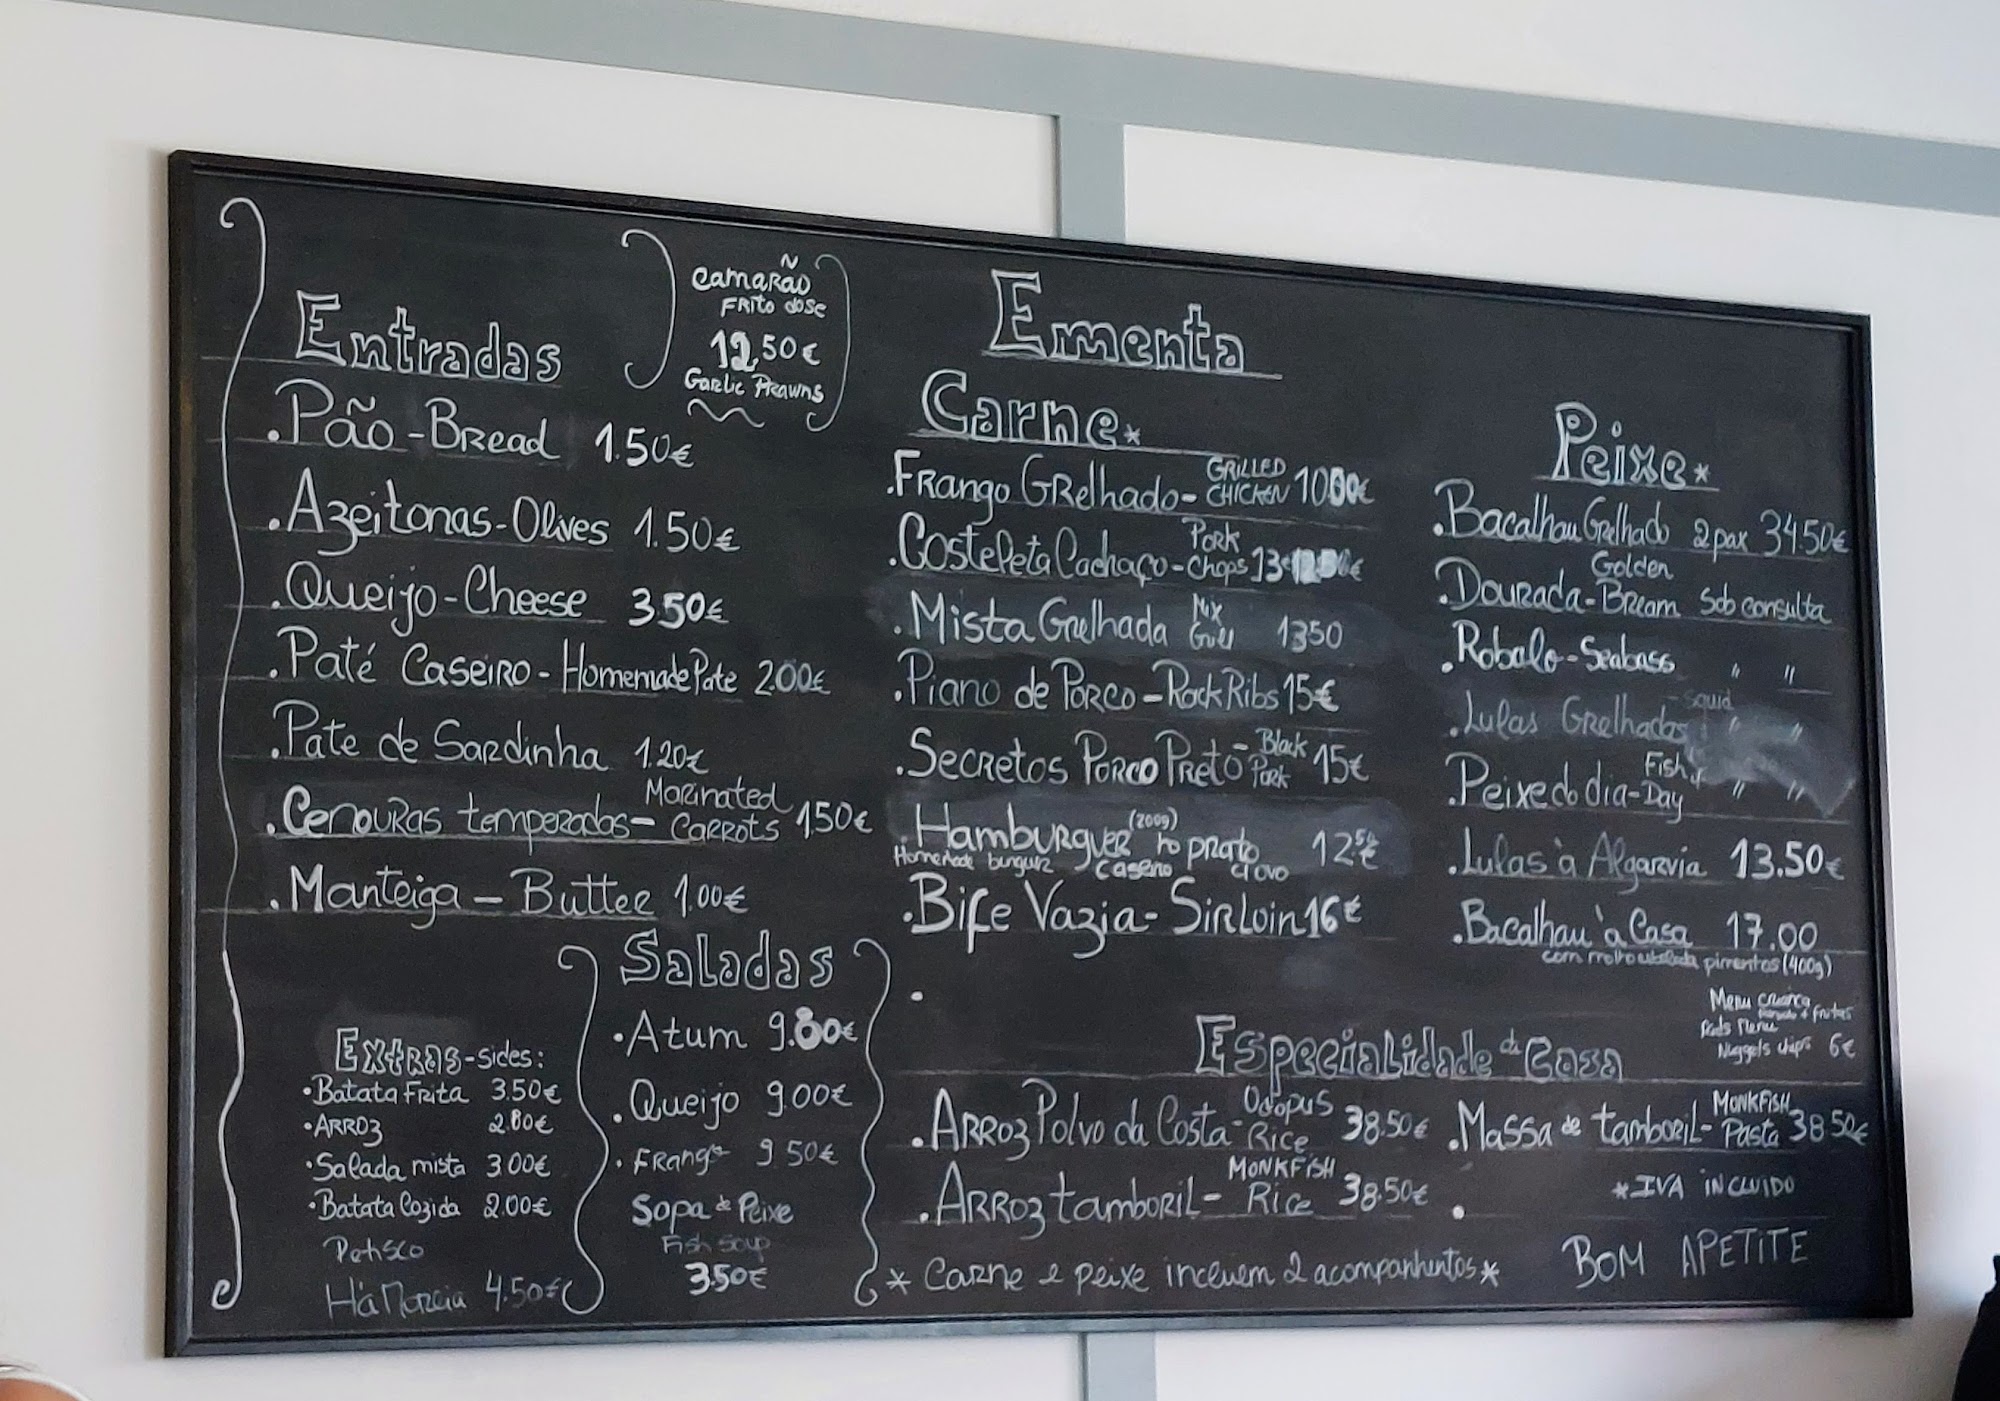 Entradas
Camarão
Frito dose
12,50€
Garlic Prawns
.Pão - Bread 1.50€
.Azeitonas - Olives 1.50€
.Queijo - Cheese 3.50€
.Paté Caseiro - Homemade Pate 2.00€
.Pate de Sardinha 1.20€
.Cenouras temperadas - Marinated Carrots 1.50€
.Manteiga - Butter 1.00€
Extras - sides:
.Batata Frita 3.50€
.Arroz 2.80€
.Salada mista 3.00€
.Batata Cozida 2.00€
Petisco
4.50€
Saladas
.Atum 9.80€
.Queijo 9.00€
.Frango 9.50€
Sopa de Peixe
Fish soup
3.50€
Ementa
Carne*
.Frango Grelhado - Grilled Chicken
.Costeleta Cachaço - Pork Chops
.Mista Grelhada Mix Grill 1350
.Piano de Porco - Rack Ribs 15€
.Secretos Porco Preto - Black Pork 15€
.Hamburguer (200g) no prato 12 50€
Homemade burguer caseiro c/ovo
.Bife Vazia - Sirloin 16€
Peixe*
.Bacalhau Grelhado 2 pax 34.50€
.Dourada - Golden Bream Sob consulta
.Robalo - Seabass " "
.Lulas Grelhadas - squid " "
.Peixe do dia - Fish of Day " "
.Lulas à Algarvia 13.50€
.Bacalhau à Casa 17.00
com molho pimentos (400g)
Menu criança
+ fritas
Kids Menu
Nuggets chips 6€
Especialidade da Casa
.Arroz Polvo da Costa - Octopus Rice 38.50€
.Arroz tamboril - Monkfish Rice 38.50€
.Massa de tamboril - Monkfish Pasta 38 50€
*IVA incluido
* Carne e peixe incluem 2 acompanhentos *
Bom Apetite